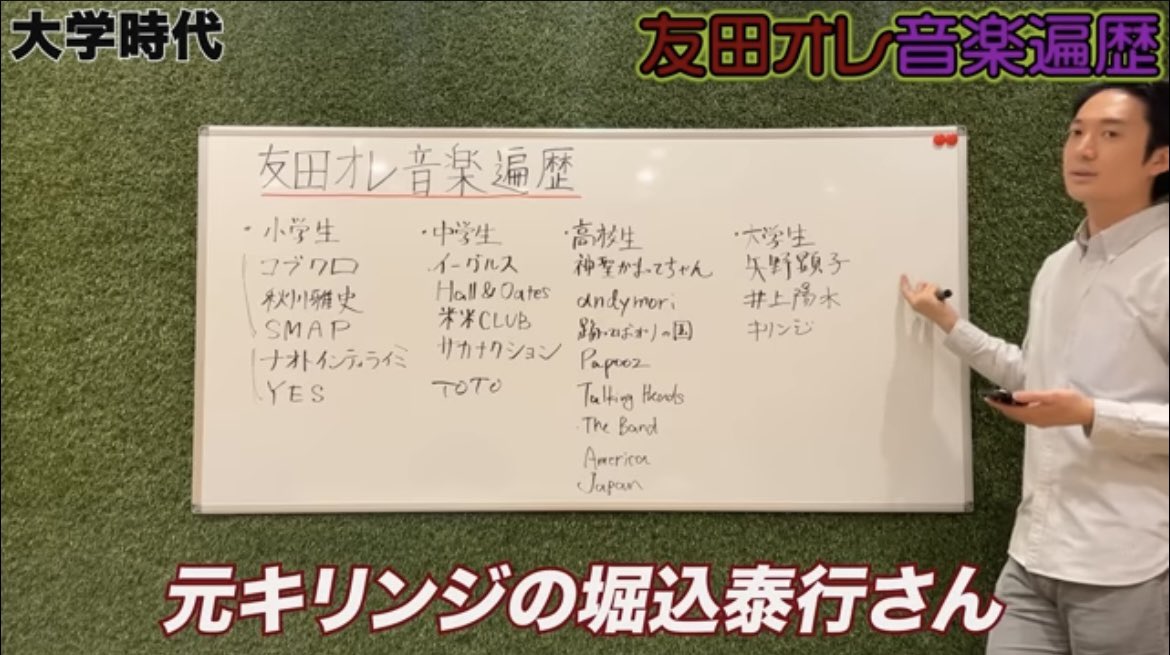 大学時代
友田オレ音楽遍歴
友田オレ音楽遍歴
・小学生
コブクロ
秋川雅史
SMAP
ナオトインティライミ
YES
・中学生
イーグルス
Hall & Oates
米米CLUB
サカナクション
TOTO
・高校生
神聖かまってちゃん
andymori
踊ってばかりの国
Papooz
Talking Heads
The Band
America
Japan
・大学生
矢野顕子
井上陽水
キリンジ
元キリンジの堀込泰行さん